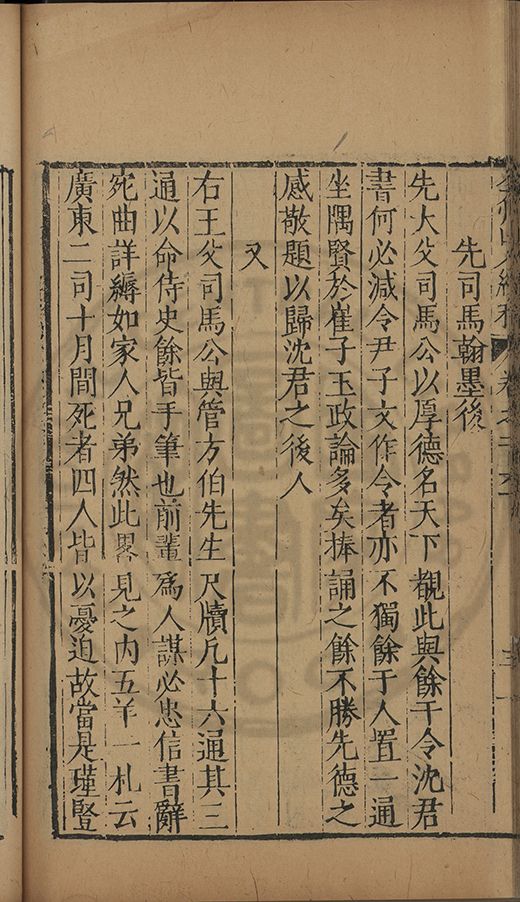 先司馬翰墨後
先大父司馬公以厚德名天下覩此與餘干令沈君
書何必減令尹子文作令者亦不獨餘于人置一通
坐隅賢於崔子玉政論多矣捧誦之餘不勝先德之
感敬題以歸沈君之後人
又
右王父司馬公與管方伯先生尺牘凡十六通其三
通以命侍史餘皆手筆也前輩爲人謀必忠信書辭
宛曲詳縟如家人兄弟然此畧見之內五羊一札云
廣東二司十月間死者四人皆以憂迫故當是瑾豎